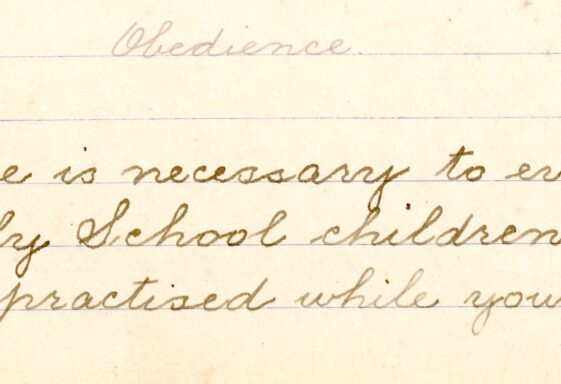 Obedience.
e is necessary to er
ly School children
practised while you